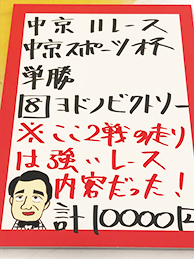 中京11レース
中京スポーツ杯
単勝
8ヨドノビクトリー
※ここ2戦の走り
は強いレース
内容だった!
計10000円